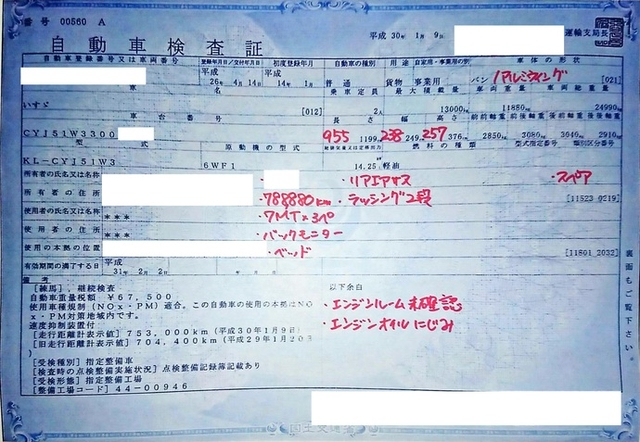 番号 00560 A
平成 30年 1月 9日
運輸支局長
自動車検査証
自動車登録番号又は車両番号 登録年月日/交付年月日 初度登録年月 自動車の種別 用途 自家用・事業用の別 車体の形状
平成 26年 4月14日 平成 14年 1月 普通 貨物 事業用 バン / アルミウイング [021]
車名 乗車定員 最大積載量 車両重量 車両総重量
いすゞ [012] 2人 13000kg 11880kg 24990kg
車台番号 長さ 幅 高さ 前前軸重 前後軸重 後前軸重 後後軸重
CYJ51W3300 955 1199cm 238 249cm 257 376cm 2850kg 3080kg 3040kg 2910kg
型式 原動機の型式 総排気量又は定格出力 燃料の種類 型式指定番号 類別区分番号
KL-CYJ51W3 6WF1 14.25 軽油
所有者の氏名又は名称 ・リアエアサス ・スペア
所有者の住所 ・788880km ・ラッシング2段 [11523 0219]
使用者の氏名又は名称 *** ・7MT×3ペ
使用者の住所 *** ・バックモニター
使用の本拠の位置 ・ベッド [11501 2032]
有効期間の満了する日 平成 31年 2月 2日
裏面もご覧下さい
備考
[練馬]，継続検査 以下余白
自動車重量税額 ¥67,500
使用車種規制(NOx・PM)適合。この自動車の使用の本拠はNO ・エンジンルーム未確認
x・PM対策地域内です。
速度抑制装置付 ・エンジンオイルにじみ
[走行距離計表示値] 753,000km (平成30年1月9日)
[旧走行距離計表示値] 704,400km (平成29年1月20日)
[受検種別] 指定整備車
[検査時の点検整備実施状況] 点検整備記録簿記載あり
[受検形態] 指定整備工場
[整備工場コード] 44-00946